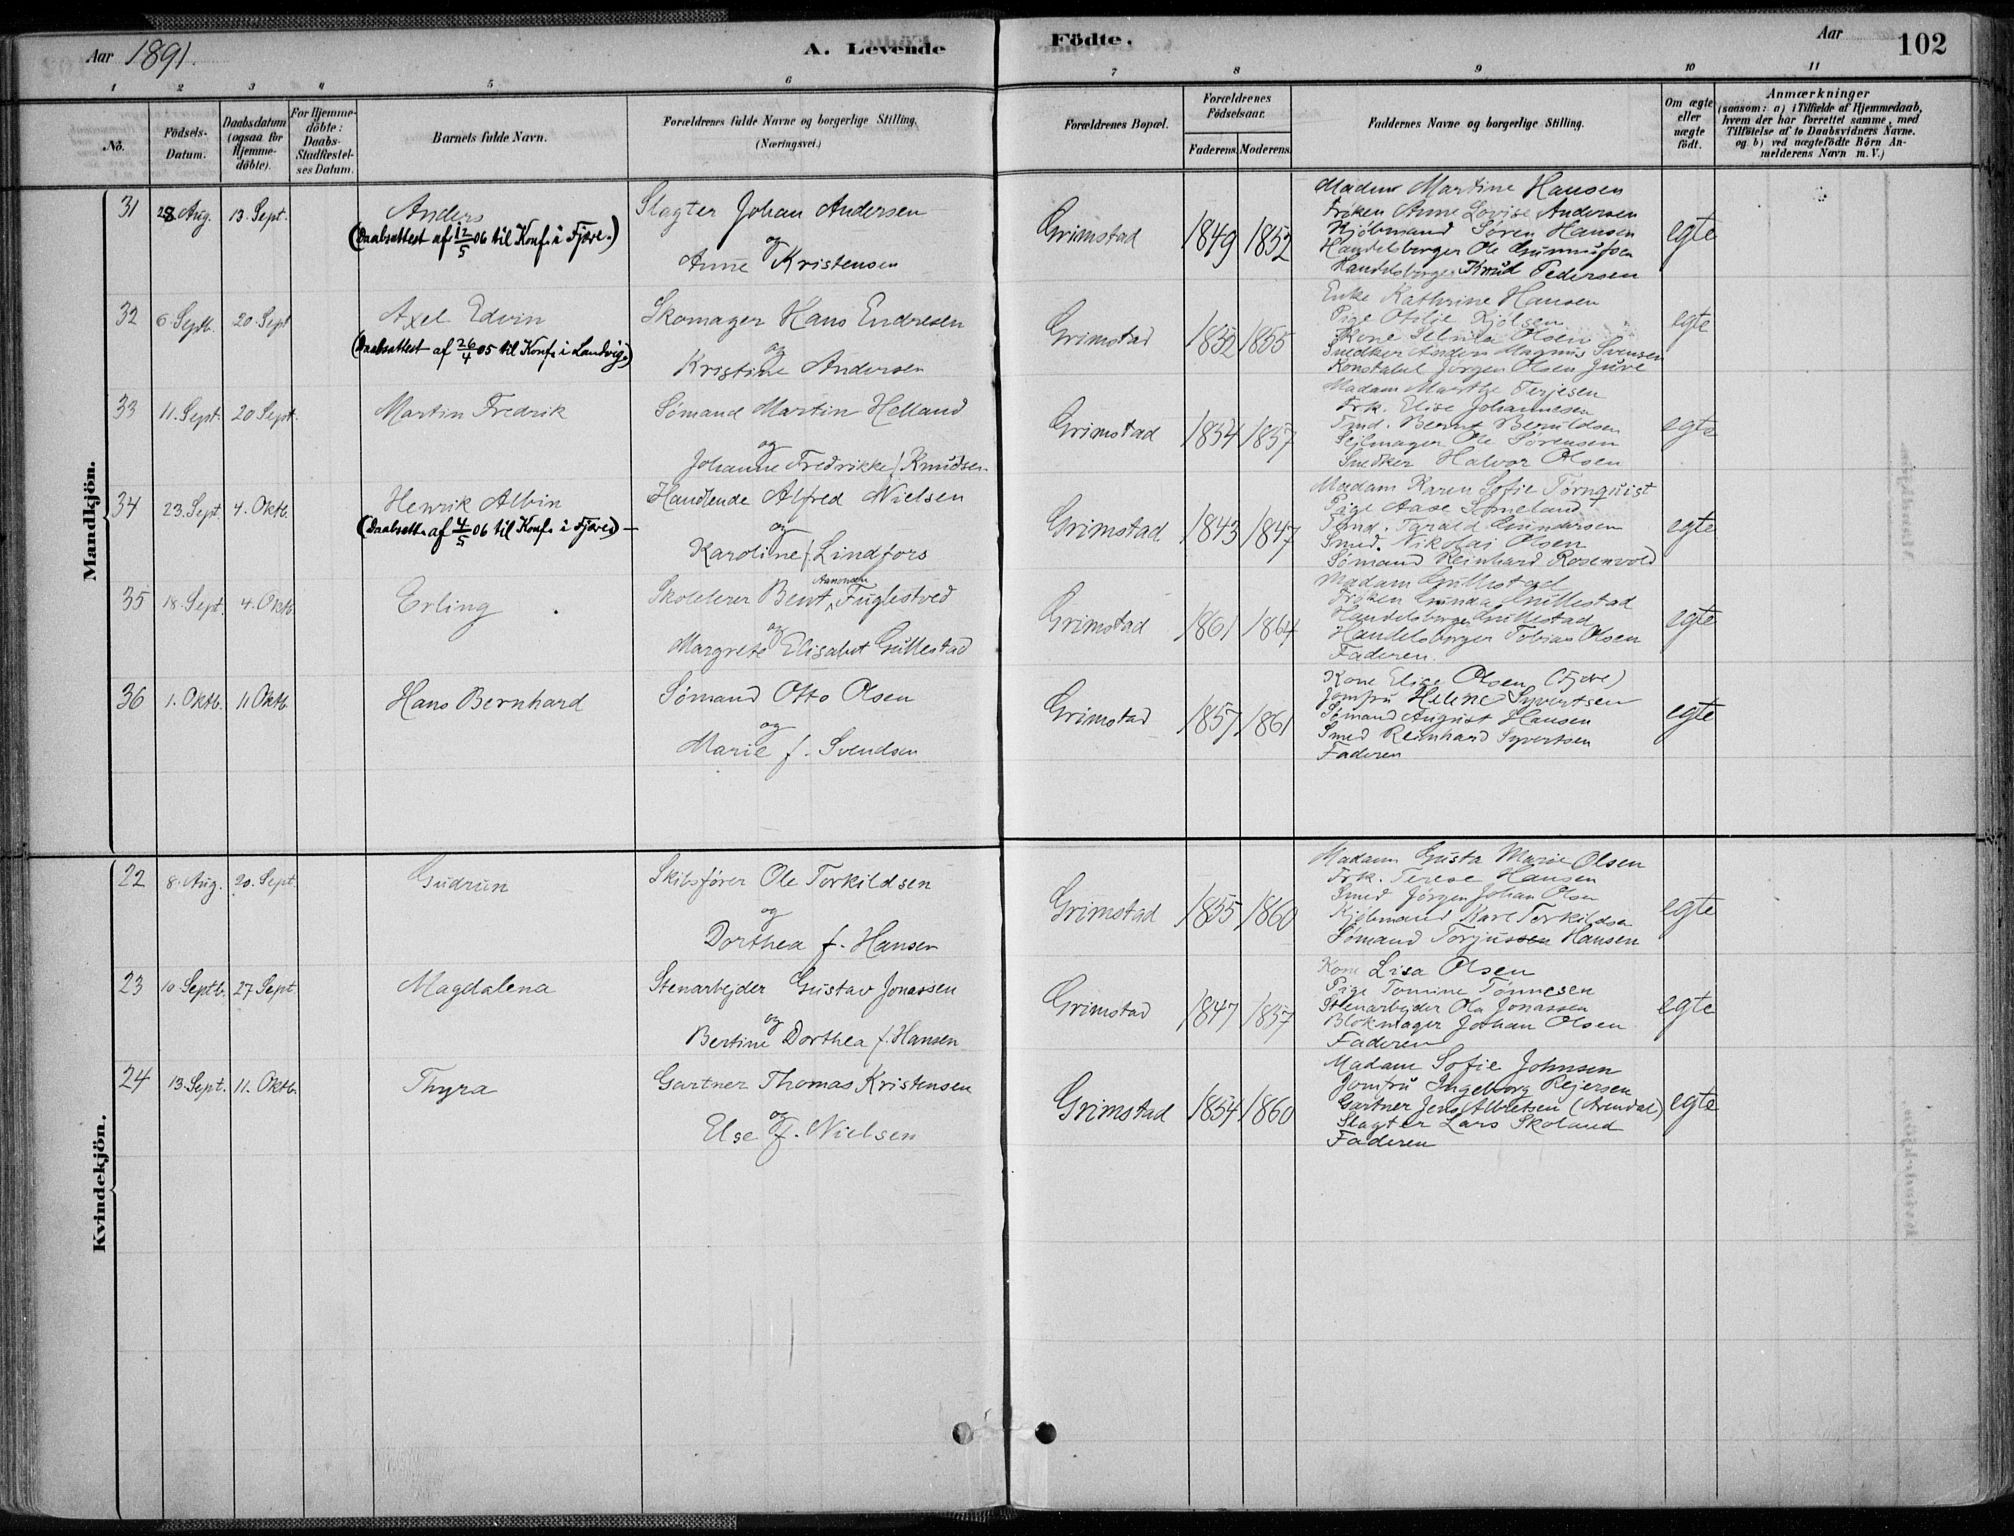 Aar 1891.
A. Levende
Födte.
Aar
102
1 2 3 4 5 6 7 8 9 10 11
No.
Födsels-Datum.
Daabsdatum (ogsaa for Hjemme-döbte).
For Hjemme-döbte: Daabs-Stadfæstel-ses Datum.
Barnets fulde Navn.
Forældrenes fulde Navne og borgerlige Stilling. (Næringsvei.)
Forældrenes Bopæl.
Forældrenes Födselsaar.
Faderens. Moderens.
Faddernes Navne og borgerlige Stilling.
Om ægte eller uægte födt.
Anmærkninger
(saasom: a) i Tilfælde af Hjemmedaab, hvem der har forrettet samme, med Tilföielse af to Daabsvidners Navne. og b) ved uægtefödte Börn Anmelderens Navn m. V.)
Mandkjön.
31 28 Aug. 13. Sept. Anders
(Daabsattest af 12/5 06 til Konf. i Fjære.)
Slagter Johan Andersen
og
Anne Kristensen
Grimstad 1849 1852
Madam Martine Hansen
Frøken Anne Lovise Andersen
Kjøbmand Søren Hansen
Handelsborger Ole
Handelsborger Knud Pedersen
egte
32 6. Septb. 20 Sept Axel Edvin
(Daabsattest af 26/4 05 til Konf. i Landvig.)
Skomager Hans Endresen
og
Kristine Andersen
Grimstad 1852 1855
Enke Kathrine Hansen
Pige Otilie Kjölsen
Kone Olsen
Snedker Anders Magnus Svensen
Konstabel Jörgen Olsen Juve
egte
33 11. Sept. 20 Sept. Martin Fredrik
Sømand Martin Helland
og
Johanne Fredrikke f. Knudsen
Grimstad 1854 1857
Madam Marthe Terjesen
Frk. Elise Johannesen
Tmd. Bernt Beruldsen
Sejlmager Ole Sörensen
Snedker Halvor Olsen
egte
34 23. Sept. 4. Oktb. Henrik Albin
(Daabsatt. af 4/5 06 til Konf. i Fjære.)
Handlende Alfred Nielsen
og
Karoline f. Lindfors
Grimstad 1843 1847
Madam Karen Sofie Törnquist
Pige Aase
Tmd. Tarald Gundersen
Smed. Nikolai Olsen
Sømand Reinhard Rosenvold
egte
35 18. Sept. 4. Oktb. Erling
Skolelærer Bent Aanensen Fuglestved
og
Margrete Elisabet Gullestad
Grimstad 1861 1864
Madam Gullestad
Frøken Gunda Gullestad
Handelsborger Gullestad
Handelsborger Tobias Olsen
Faderen.
egte
36 1. Oktb. 11 Oktb. Hans Bernhard
Sømand Otto Olsen
og
Marie f. Svendsen
Grimstad 1857 1861
Kone Elise Olsen (Fjære)
Jomfru Helene Syvertsen
Sømand August Hansen
Smed Reinhard Syvertsen
Faderen
egte
Kvindekjön.
22 8. Aug. 20. Sept. Gudrun
Skibsfører Ole Torkildsen
og
Dorthea f. Hansen
Grimstad 1855 1860
Madam Gusta Marie Olsen
Frk. Terese Hansen
Smed Jörgen Johan Olsen
Kjøbmand Karl Torkildsen
Sømand Torjussen Hansen
egte
23 10 Septb. 27 Sept. Magdalena
Stenarbejder Gustav Jonassen
og
Bertine Dorthea f. Hansen
Grimstad 1847 1857
Kone Lisa Olsen
Pige Tomine Tönnesen
Stenarbejder Ola Jonassen
Blokmager Johan Olsen
Faderen
egte
24 13. Sept. 11. Oktb. Thyra
Gartner Thomas Kristensen
og
Else f. Nielsen
Grimstad 1854 1860
Madam Sofie Johnsen
Jomfru Ingeborg Rejersen
Gartner Jens Albretsen (Arendal)
Slagter Lars Skoland
Faderen
egte